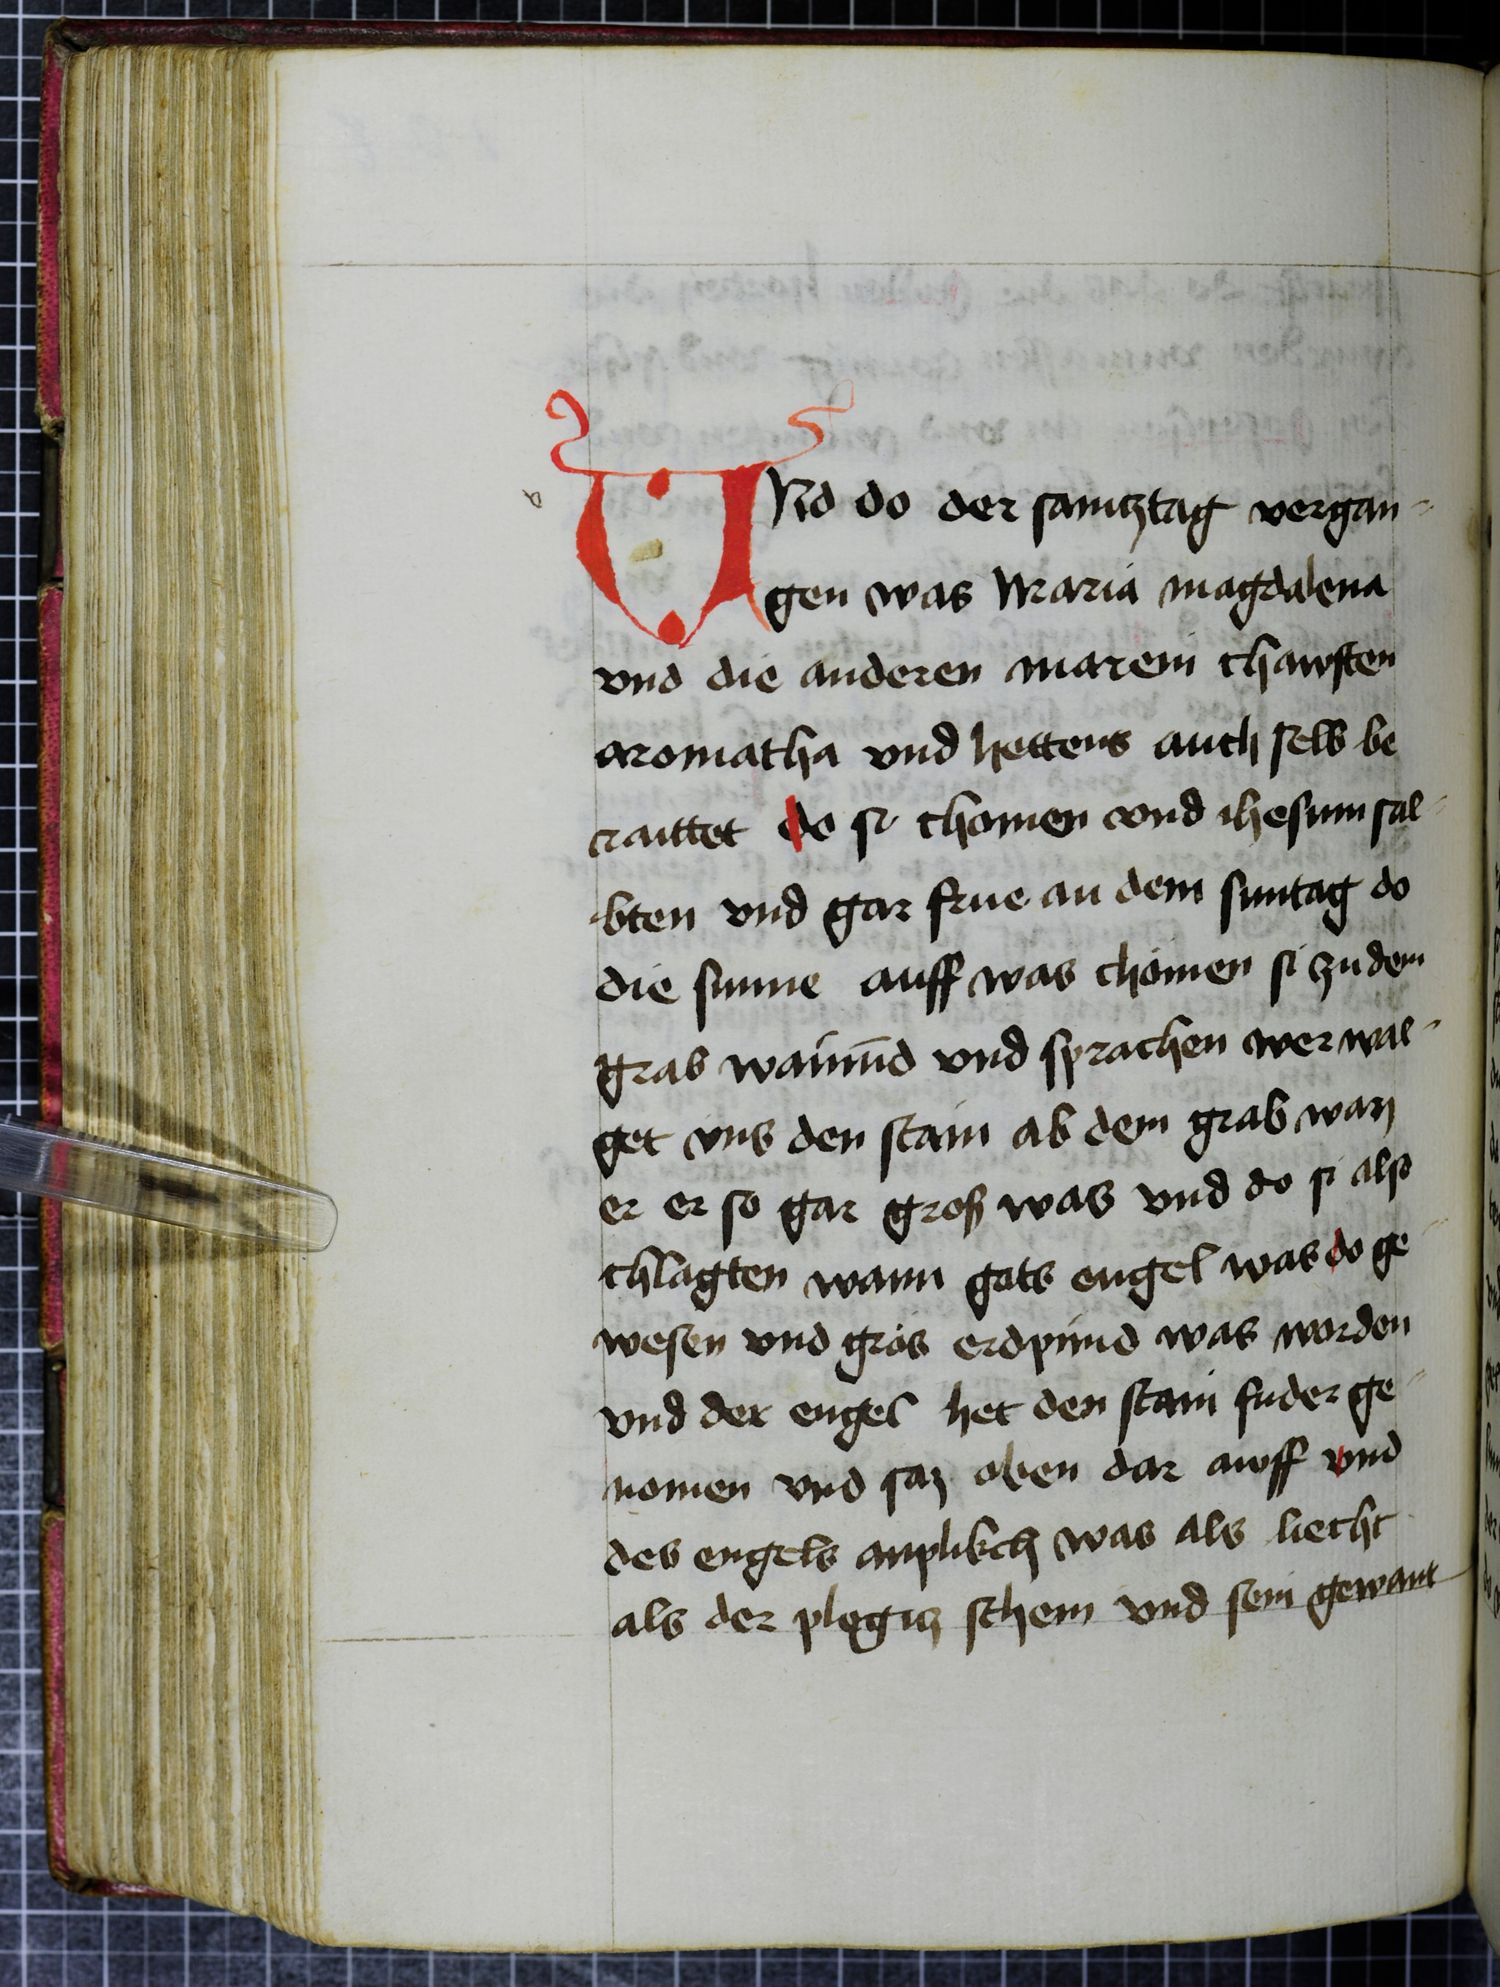 VNd do der samcztag vergan-
gen was Maria magdalena
vnd die anderen marein chawften
aromatha vnd hettens auch selb be
raittet do si chomen vnd ihesum sal-
bten vnd gar frue an dem suntag do
die sunne auff was chömen si zu dem
grab wainūd vnd sprachen wer wal-
get vns den stain ab dem grab wan
er er so gar groß was vnd do si also
chlagten wann gots engel was do ge
wesen vnd gros erdpimd was worden
vnd der engel het den stain fuder ge-
nomen vnd saz oben dar awff vnd
des engels anplikch was als liecht
als der plegicz schein vnd sein gewant